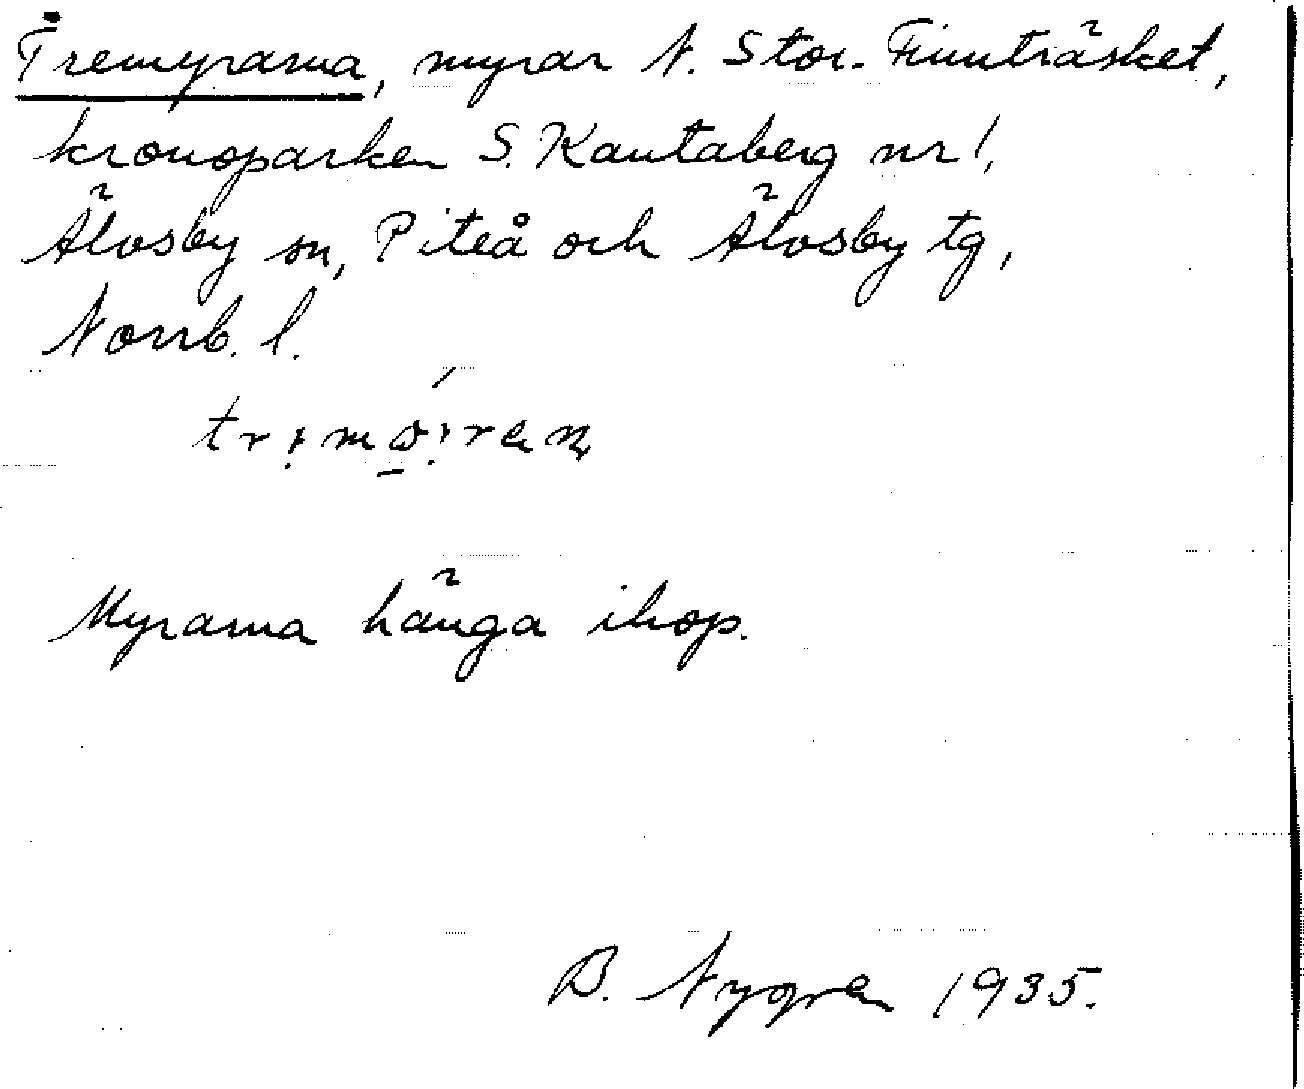 Tremyrarna, myrar N. Stor-Finnträsket,
kronoparken S. Kantaberg nr 1,
Älvsby sn, Piteå och Älvsby tg,
Norrb. l.
Myrarna hänga ihop.
B. Nygren 1935.